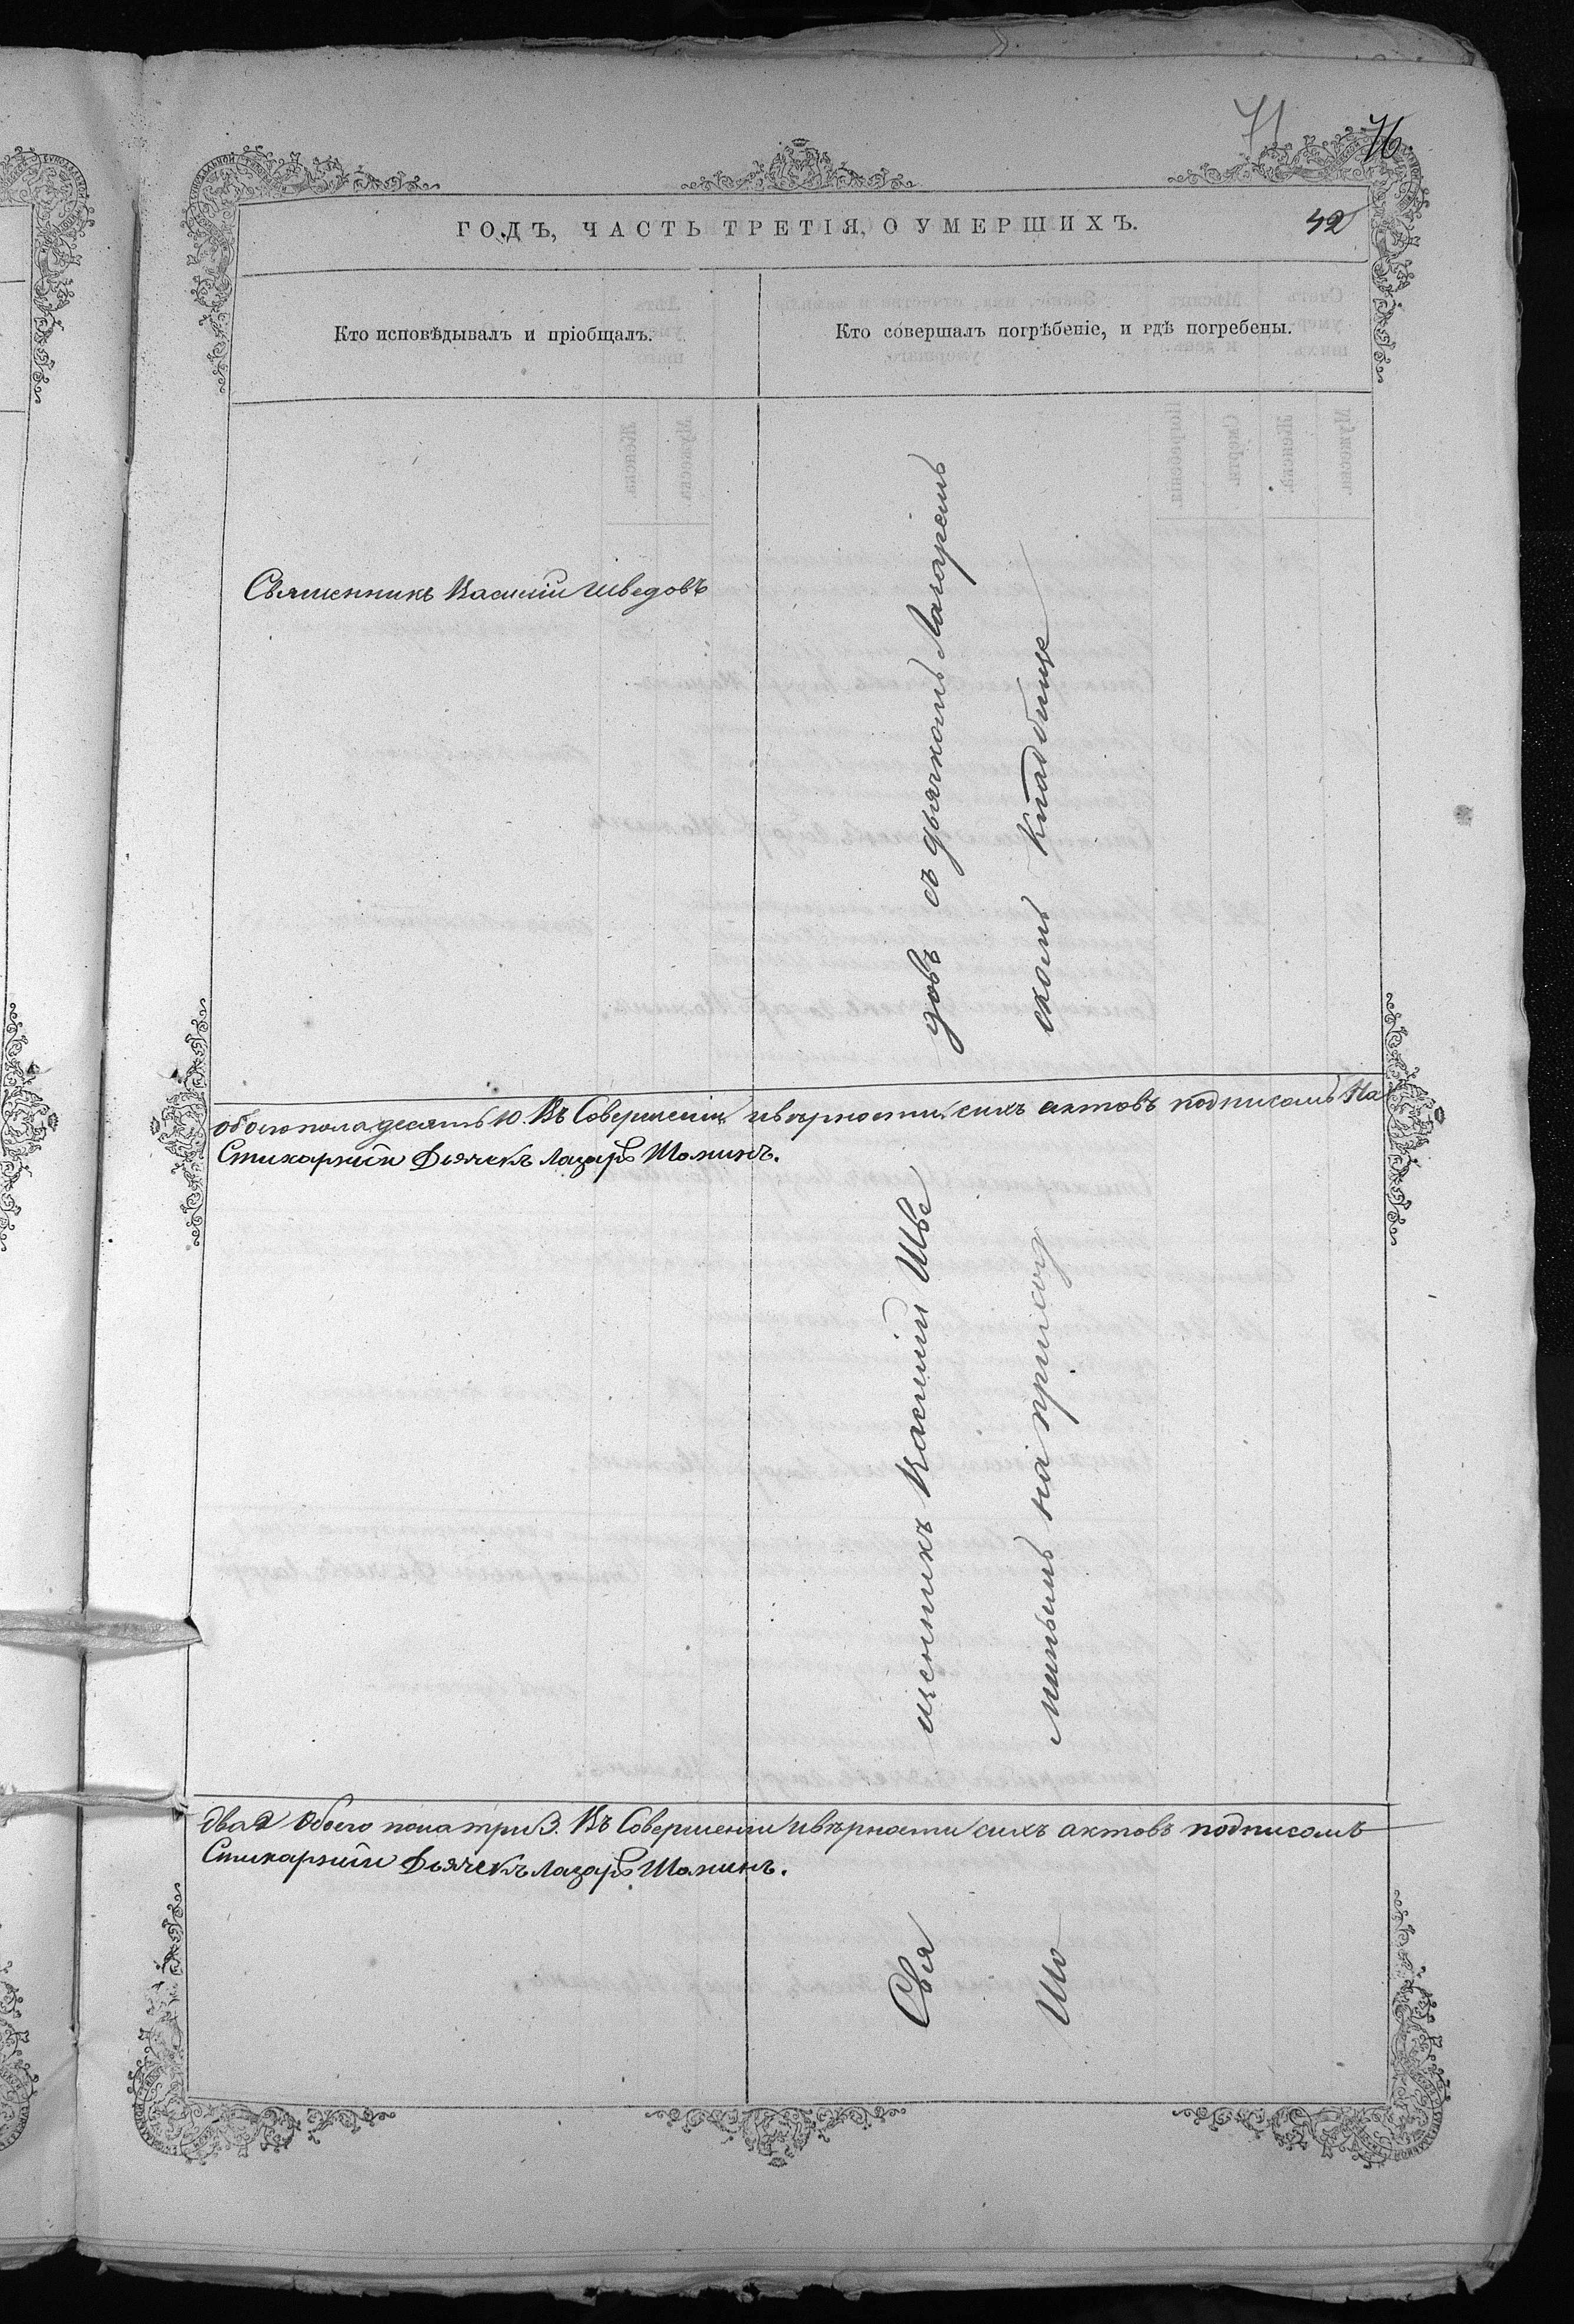 71
76
ГОДЪ, ЧАСТЬ ТРЕТІЯ, О УМЕРШИХЪ.
42
Кто исповѣдывалъ и пріобщалъ.
Кто совершалъ погрѣбеніе, и гдѣ погребены.
Священникъ Василій Шведовъ
Священникъ Василій Шведовъ съ дьячкомъ Лазаремъ
Шаминымъ на приходскомъ кладбище
обоего пола десять 10. Въ Совершеніи и вѣрности сихъ актовъ подписомъ На
Стихарный Дьячекъ Лазарь Шаминъ.
два 2 Обоего пола три 3. Въ Совершеніи и вѣрности сихъ актовъ подписомъ
Стихарный Дьячекъ Лазарь Шаминъ.